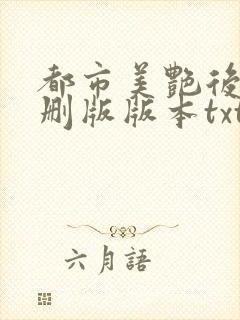 都市美艷後
刪版版本txt
六月語